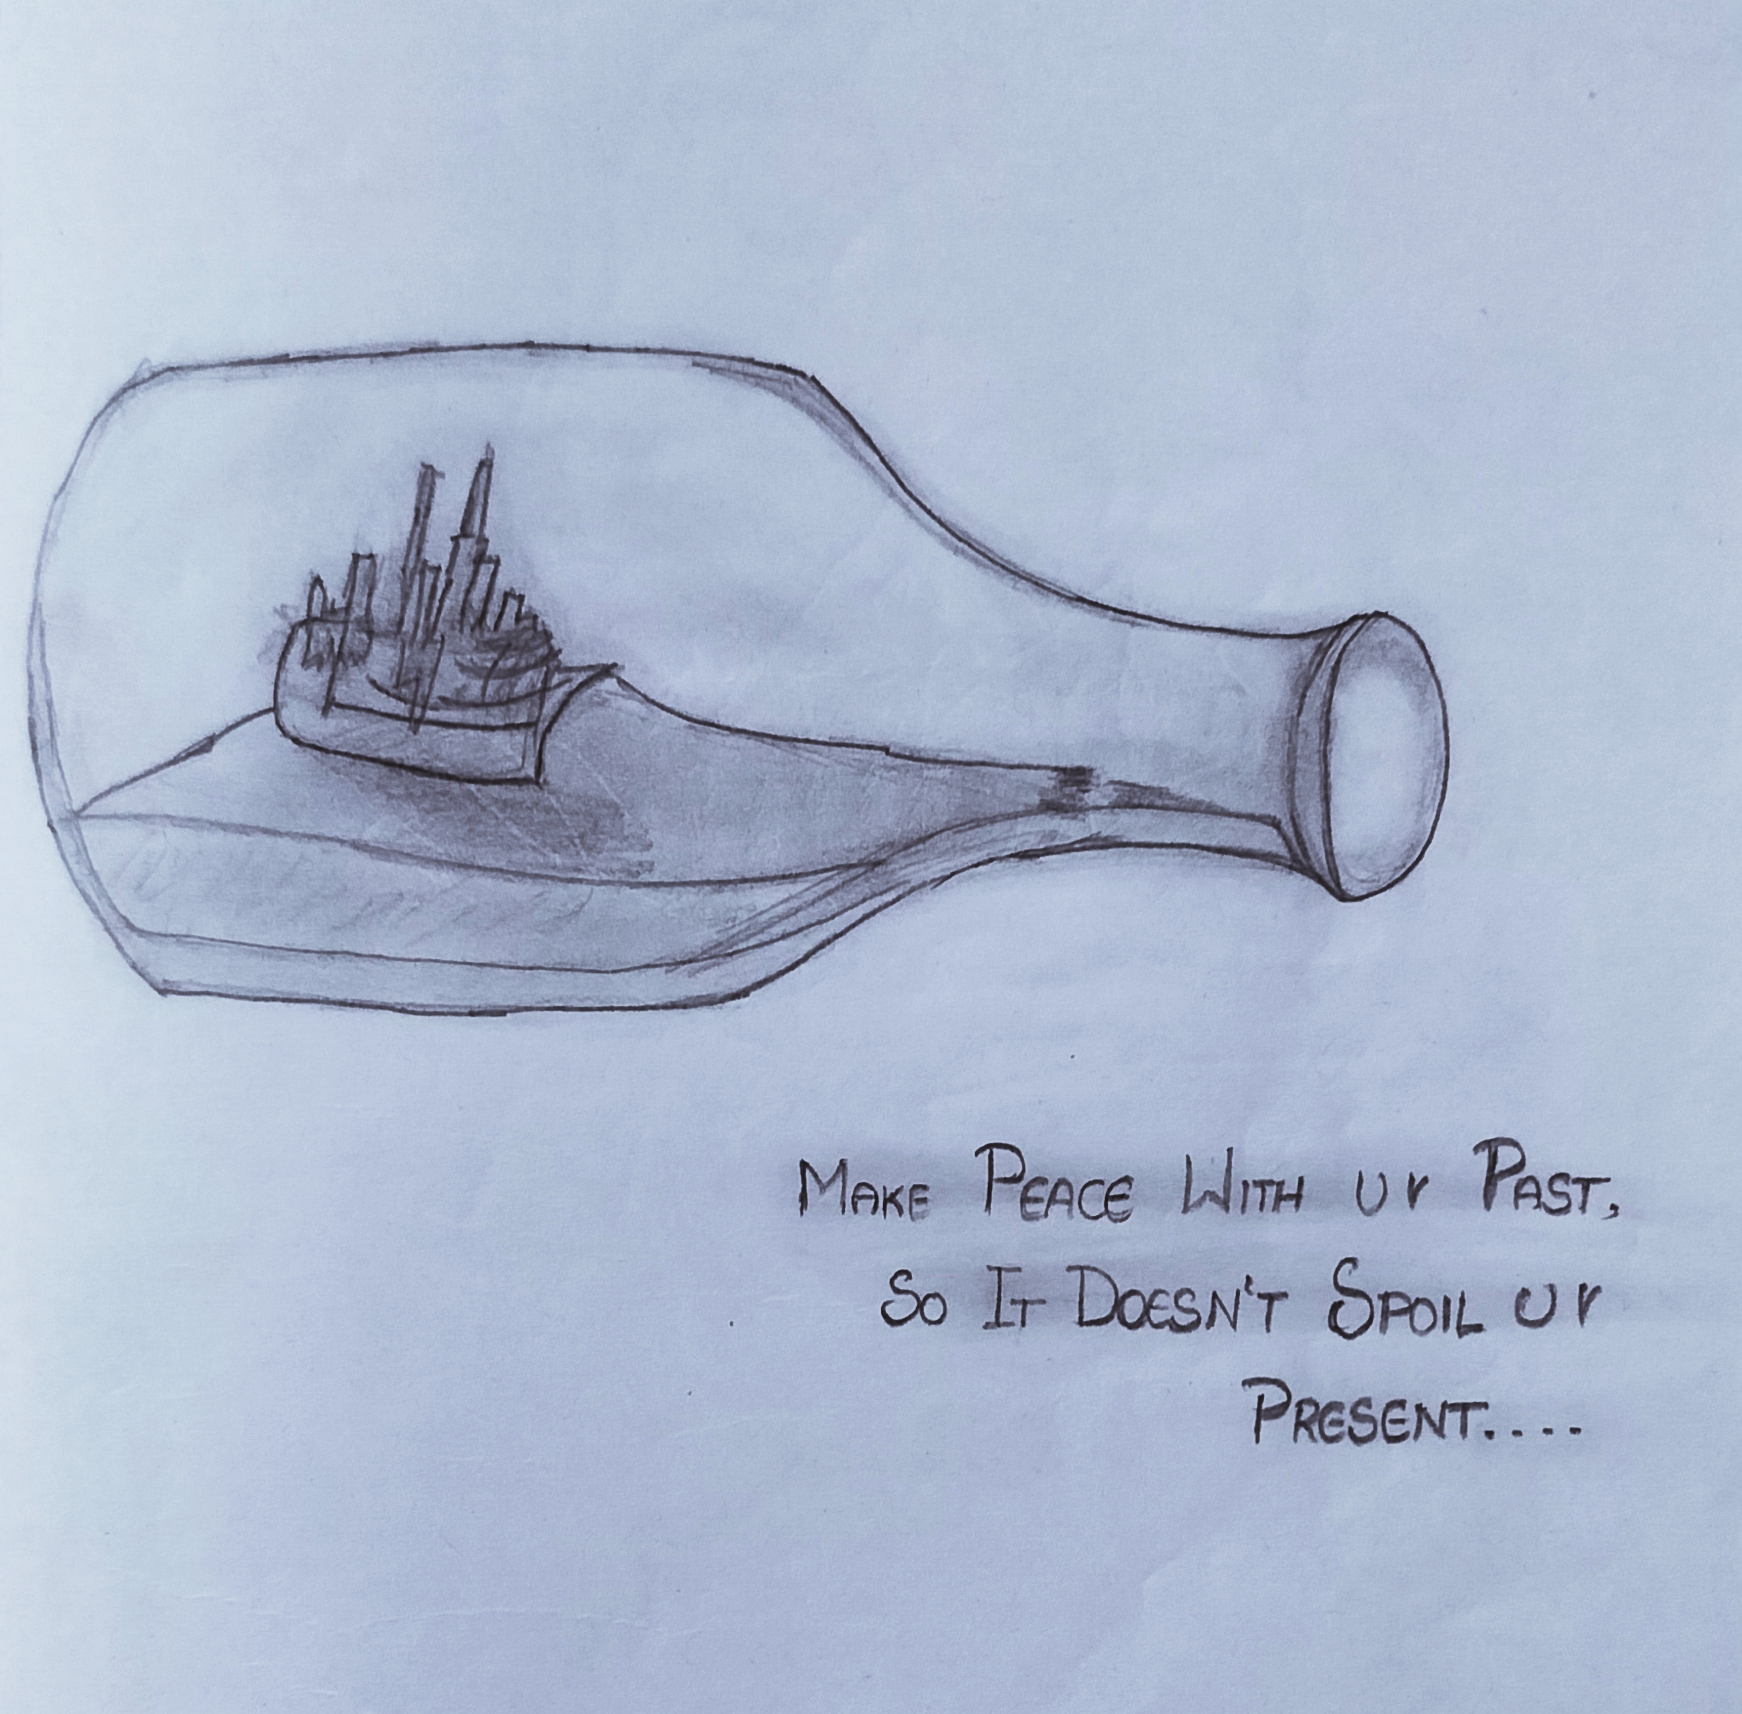 Make Peace With ur Past,
So It Doesn't Spoil ur
Present....